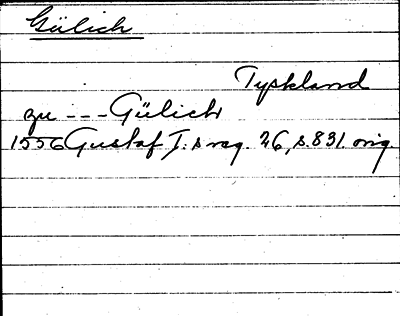 Gülich
Tyskland
zu --- Gülich
1556 Gustaf I:s reg. 26, s. 831. orig.